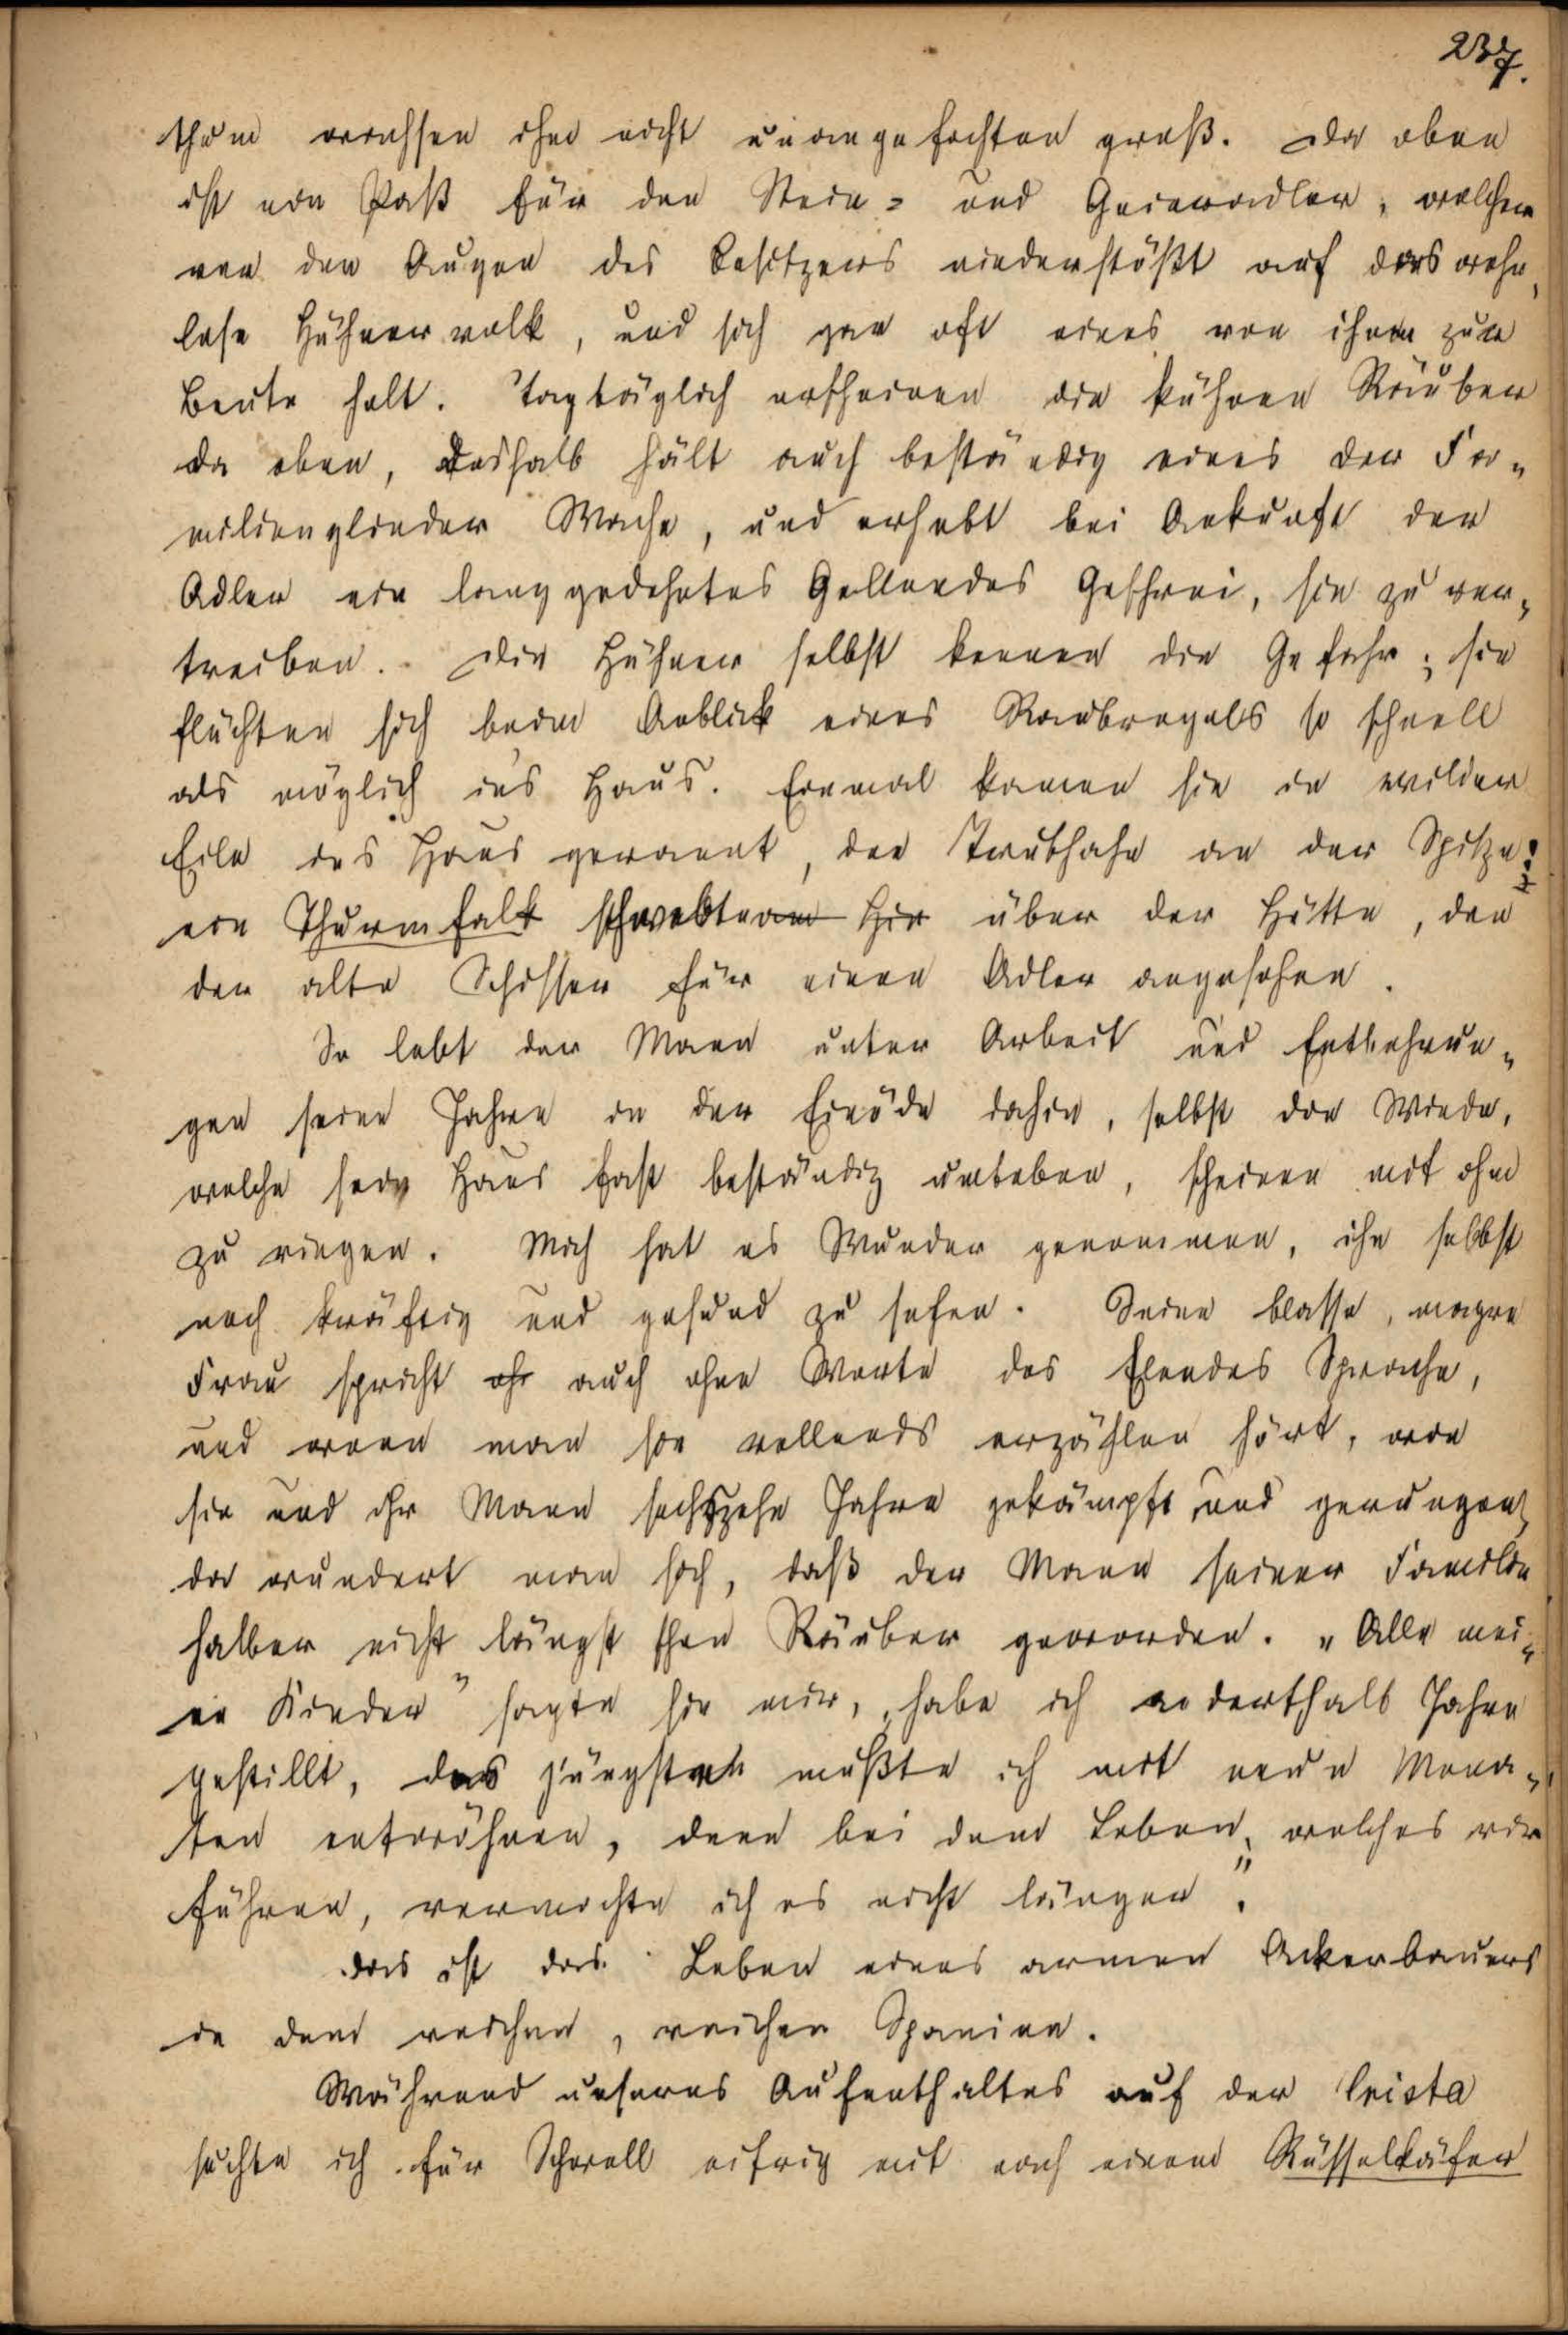 237.
thum wachsen ihm nicht unangefochten groß. Da oben
ist ein Paß für den Stein- und Geieradler, welcher
vor den Augen des Besitzers niederstößt auf das wehr-
lose Hühnervolk, und sich gar oft eines von ihnen zur
Beute holt. Tagtäglich erscheinen die kühnen Räuber
da oben, deshalb hält auch beständig eines der Fa-
milienglieder Wache, und erhebt bei Ankunft der
Adler ein langgedehntes Gellendes Geschrei, sie zu ver-
treiben. Die Hühner selbst kennen die Gefahr; sie
flüchten sich beim Anblick eines Raubvogels so schnell
als möglich ins Haus. Einmal kamen sie in wilder
Eile ins Haus gerannt, der Truthahn an der Spitze:
ein Thurmfalk schwebte über der Hütte, den
der alte Schisser für einen Adler angesehen.
So lebt der Mann unter Arbeit und Entbehrun-
gen seine Jahre in der Einöde dahin, selbst die Winde,
welche sein Haus fast beständig umtoben, scheinen mit ihm
zu ringen. Mich hat es Wunder genommen, ihn selbst
noch kräftig und gesund zu sehen. Seine blasse, magre
Frau spricht auch ohne Worte des Elendes Sprache,
und wenn man sie vollends erzählen hört, wie
sie und ihr Mann sechszehn Jahre gekämpft und gerungen,
da wundert man sich, daß der Mann seiner Familie
halber nicht längst schon Räuber geworden. „Alle mei-
ne Kinder" sagte sie mir, „habe ich anderthalb Jahre
gestillt, das jüngste mußte ich mit neun Mona-
ten entwöhnen, denn bei dem Leben, welches wir
führen, vermochte ich es nicht länger".
Das ist das Leben eines armen Ackerbauers
in dem reichen, reichen Spanien.
Während unseres Aufenthaltes auf der Crista
suchte ich für Schwall eifrig mit nach einem Rüsselkäfer